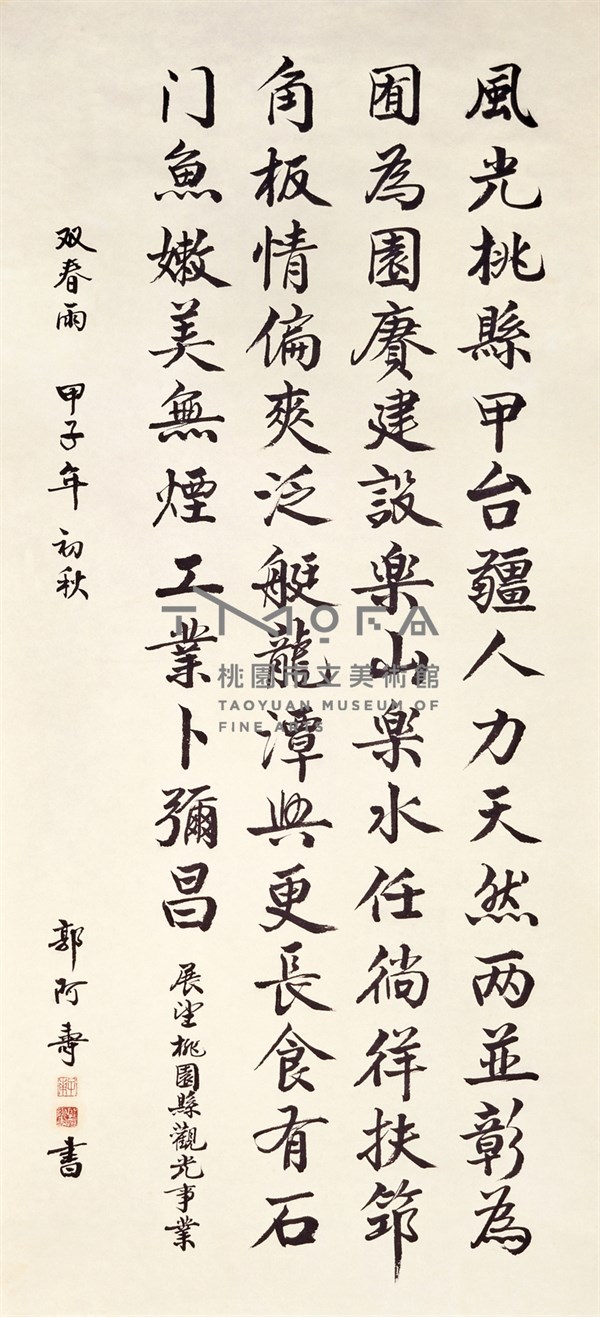 風光桃縣甲台疆人力天然两並彰為
囿為園賡建設楽山楽水任徜徉扶筇
角板情偏爽泛艇龍潭興更長食有石
门魚嫩美無煙工業卜彌昌
展望桃園縣觀光事業
双春雨 甲子年 初秋 郭阿壽 書
TMoFA
桃園市立美術館
TAOYUAN MUSEUM OF
FINE ARTS